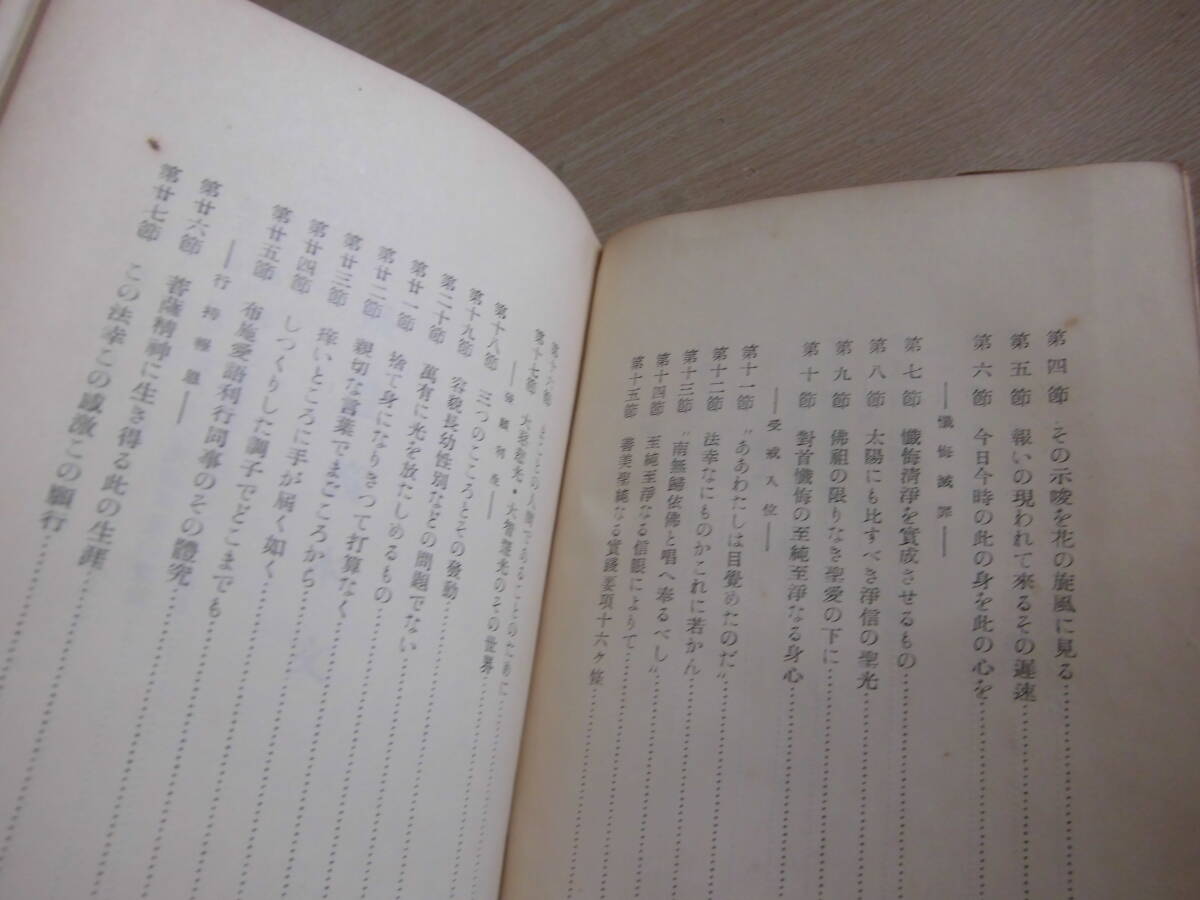 第四節 その示唆を花の旋風に見る
第五節 報いの現われて來るその遲速
第六節 今日今時の此の身を此の心を
――懺悔滅罪――
第七節 懺悔淸淨を實成させるもの
第八節 太陽にも比すべき淨信の聖光
第九節 佛祖の限りなき聖愛の下に
第十節 對首懺悔の至純至淨なる身心
――受戒入位――
第十一節 〝ああわたしは目覺めたのだ〟
第十二節 法幸なにものかこれに若かん
第十三節 〝南無歸依佛と唱へ奉るべし〟
第十四節 至純至淨なる信眼によりて
第十五節 善美聖純なる實踐要項十六ケ條
第十六節 まことの人間であることのために
第十七節 大恒德光・大智慧光のその世界
――發願利生――
第十八節 三つのこころとその發動
第十九節 容貌長幼性別などの問題でない
第二十節 萬有に光を放たしめるもの
第廿一節 捨て身になりきつて打算なく
第廿二節 親切な言葉でまごころから
第廿三節 痒いところに手が屆く如く
第廿四節 しつくりした調子でどこまでも
第廿五節 布施愛語利行同事のその體究
――行持報恩――
第廿六節 菩薩精神に生き得る此の生涯
第廿七節 この法幸この感激この願行